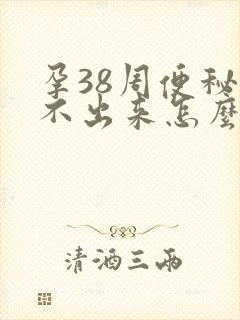 孕38周便秘
不出来怎麽
清酒三两